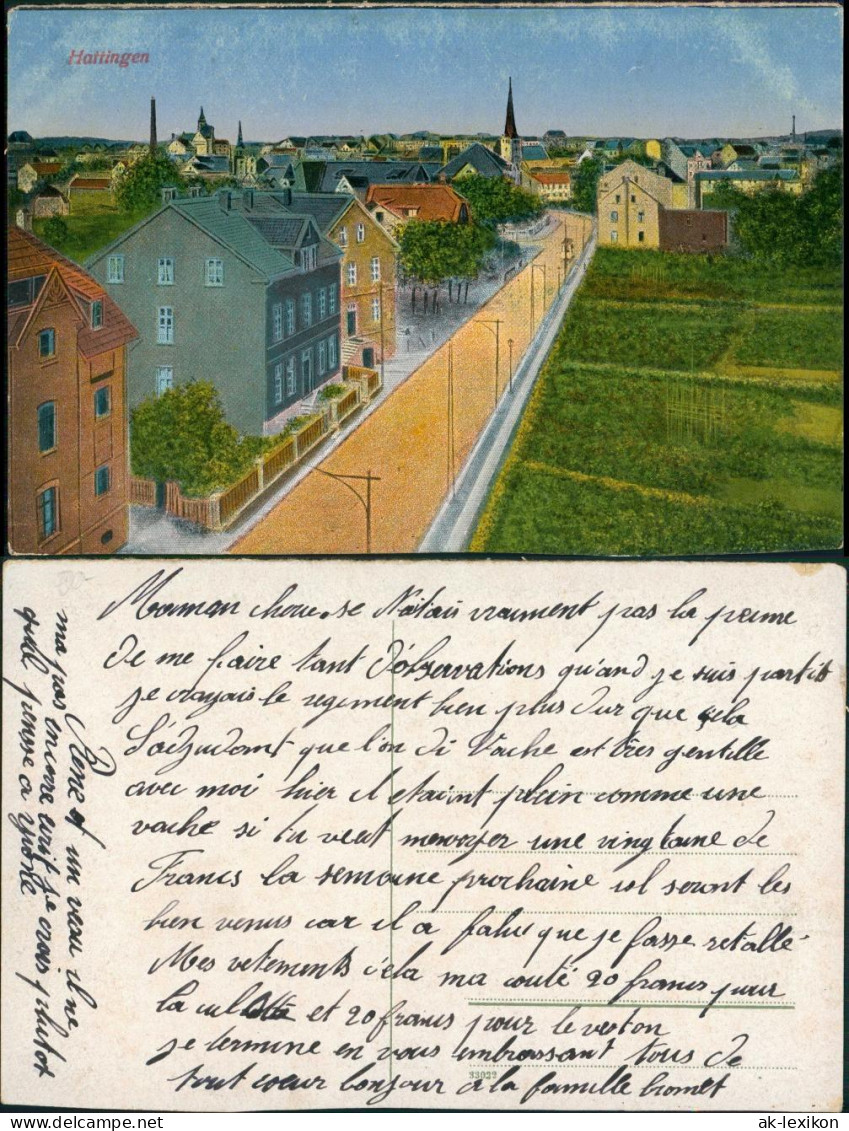 Hattingen
Maman chouese N'etais vraument pas la peume
de me faire tant d'observations quand je suis partit
je crayais le regement bien plus dur que cela
L'adjudant que l'on di Vache est tres gentille
avec moi hier il etaint plein comme une
vache si tu veut menvoyer une vingtaine de
Francs la semaine prochaine isl seront les
bien venus car il a falut que je fasse retaillé
Mes vetements cela ma couté 20 francs pour
la culotte et 20 francs pour le veston
je termine en vous embrassant tous de
tout coeur bonjour a la famille
33022
Rene et un veau il ne
ma pas encore ecrit je crois plutot
quil pense a Yvonne
delcampe.net
ak-lexikon